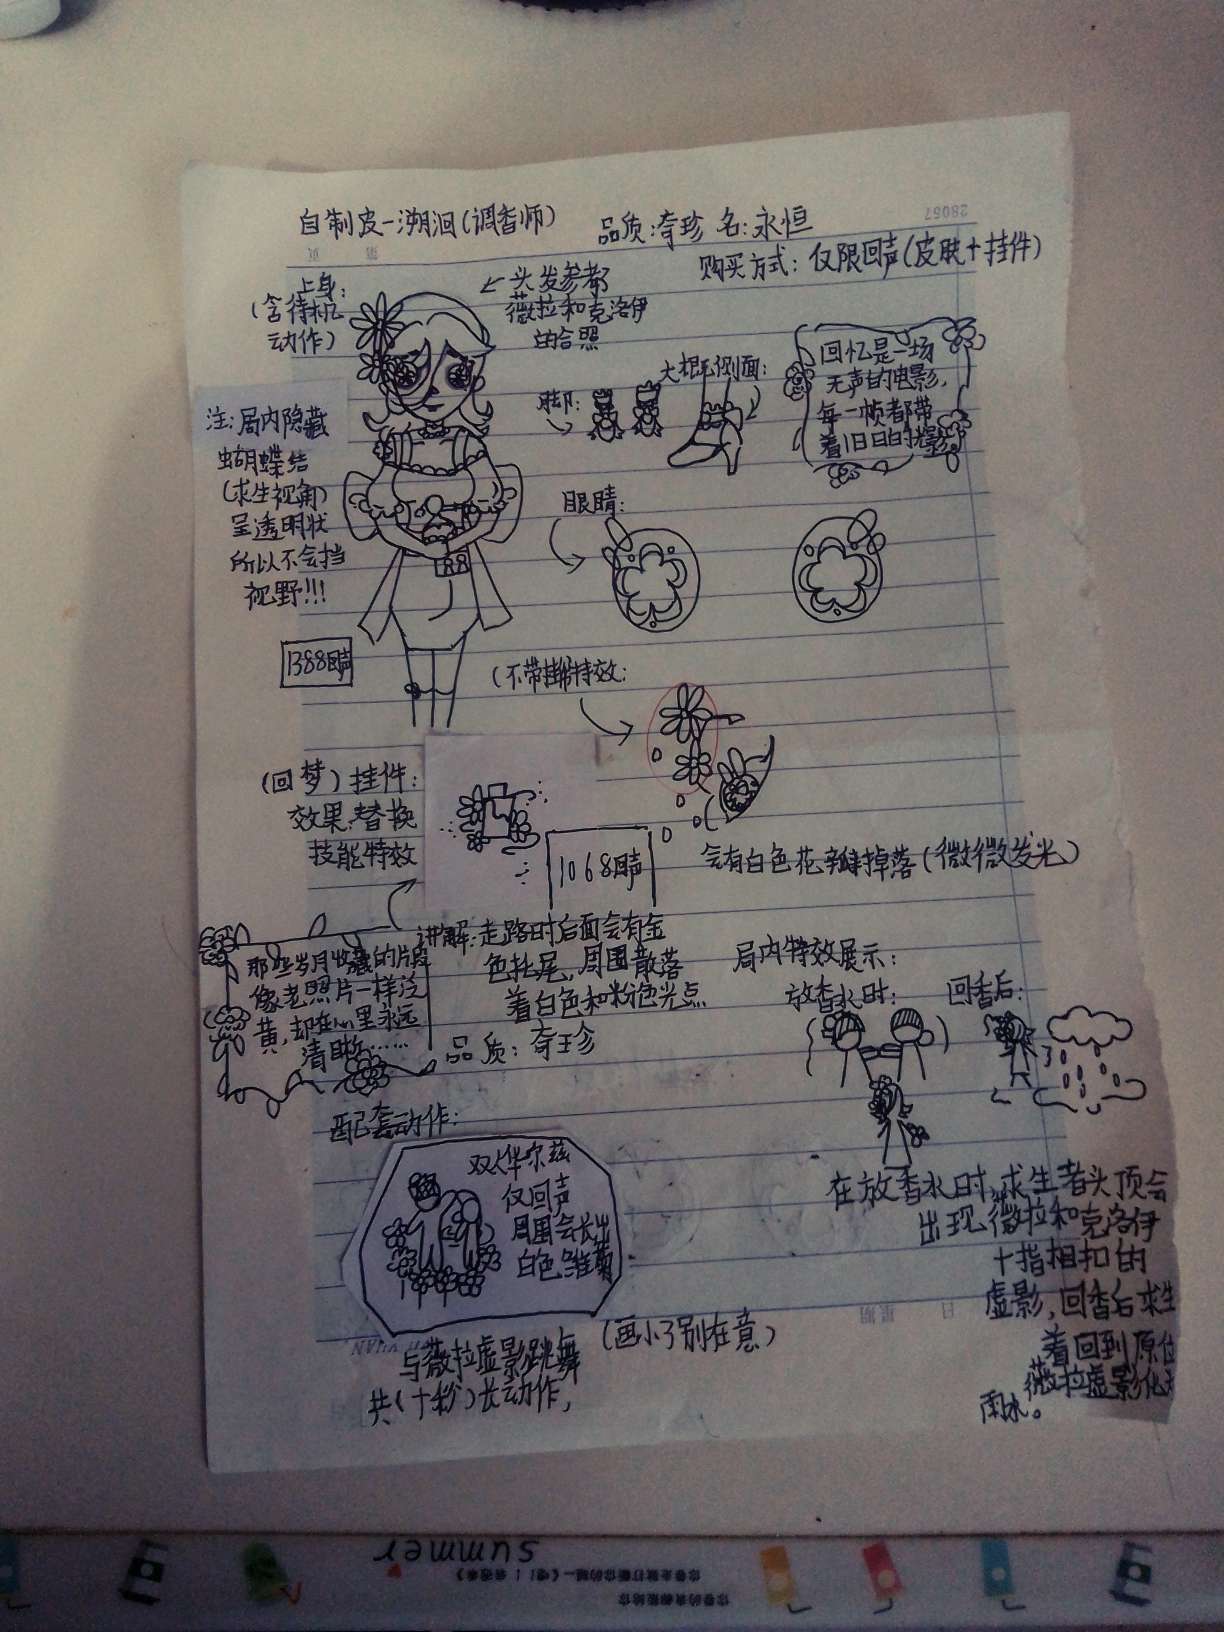 自制皮-溯洄(调香师)
品质:奇珍 名:永恒
28067
购买方式:仅限回声(皮肤+挂件)
上身:
(含待机
动作)
←头发参考
薇拉和克洛伊
的合照
注:局内隐藏
蝴蝶结
(求生视角)
呈透明状
所以不会挡
视野!!!
脚:
侧面:
回忆是一场
无声的电影,
每一帧都带
着旧日的光影。
眼睛:
88
1388回声
(不带挂件特效:
会有白色花瓣掉落(微微发光)
(回梦)挂件:
效果:替换
技能特效
1068回声
讲解:走路时后面会有金
色拖尾,周围散落
着白色和粉色光点
品质:奇珍
那些岁月收藏的片段
像老照片一样泛
黄,却在心里永远
清晰……
局内特效展示:
放香水时:
回香后:
配套动作:
双人华尔兹
仅回声
周围会长出
白色雏菊
在放香水时,求生者头顶会
出现薇拉和克洛伊
十指相扣的
虚影,回香后求生
着回到原位
薇拉虚影化为
雨水。
(画小了别在意)
与薇拉虚影跳舞
共(十秒)长动作,
星期
日
summer